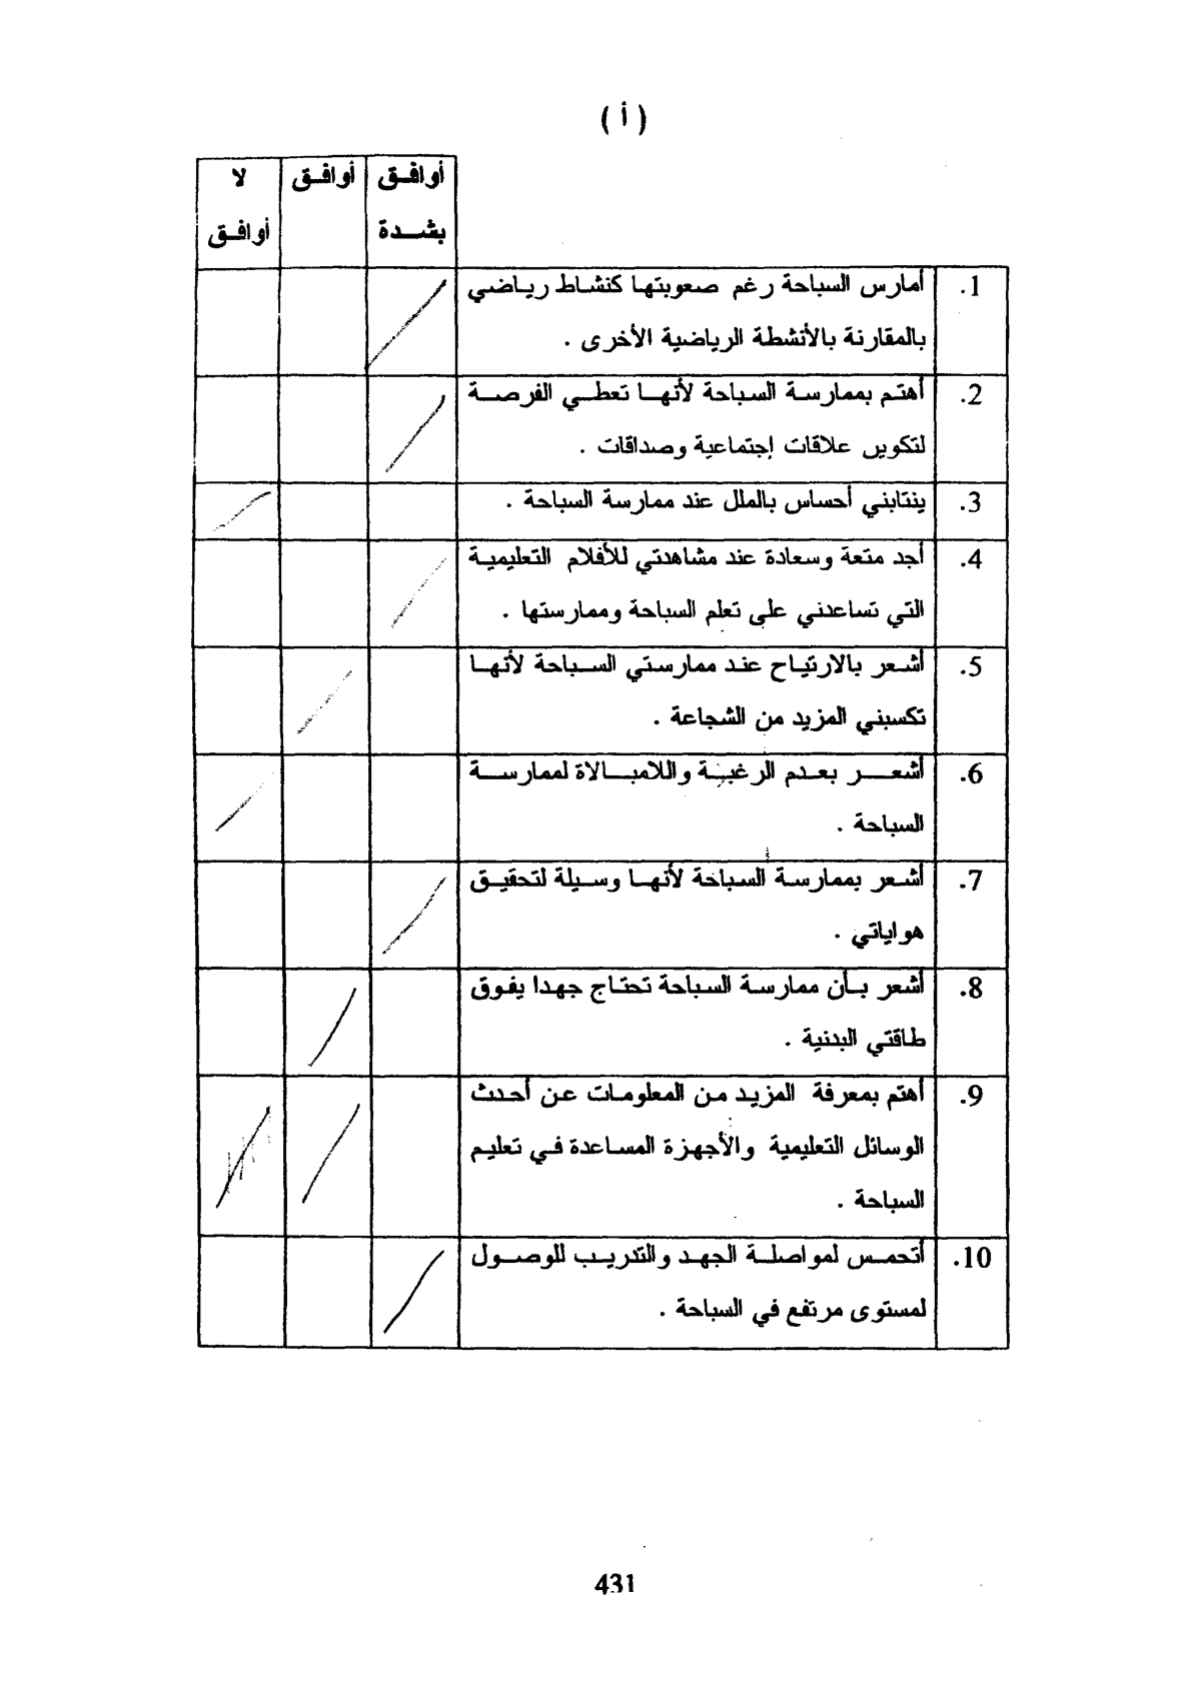 ( أ )
أوافق أوافق لا
بشدة أوافق
1. أمارس السباحة رغم صعوبتها كنشاط رياضي
بالمقارنة بالأنشطة الرياضية الأخرى .
2. أهتم بممارسة السباحة لأنها تعطي الفرصة
لتكوين علاقات إجتماعية وصداقات .
3. ينتابني أحساس بالملل عند ممارسة السباحة .
4. أجد متعة وسعادة عند مشاهدتي للأفلام التعليمية
التي تساعدني على تعلم السباحة وممارستها .
5. أشعر بالارتياح عند ممارستي السباحة لأنها
تكسبني المزيد من الشجاعة .
6. أشعر بعدم الرغبة واللامبالاة لممارسة
السباحة .
7. أشعر بممارسة السباحة لأنها وسيلة لتحقيق
هواياتي .
8. أشعر بأن ممارسة السباحة تحتاج جهدا يفوق
طاقتي البدنية .
9. أهتم بمعرفة المزيد من المعلومات عن أحدث
الوسائل التعليمية والأجهزة المساعدة في تعليم
السباحة .
10. أتحمس لمواصلة الجهد والتدريب للوصول
لمستوى مرتفع في السباحة .
431